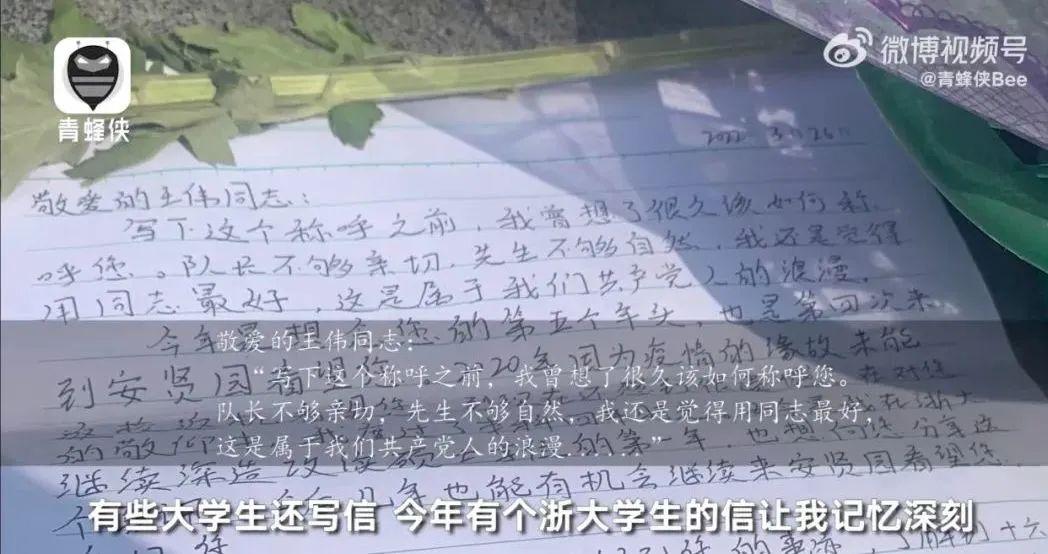 青蜂侠
微博视频号
@青蜂侠Bee
2022. 3. 26
敬爱的王伟同志：
写下这个称呼之前，我曾想了很久该如何称
呼您。队长不够亲切，先生不够自然，我还是觉得
用同志最好，这是属于我们共产党人的浪漫。
今年是 您的第五个年头，也是第四次来
到安贤园看望您。2020年因为疫情的缘故未能
敬爱的王伟同志：
“写下这个称呼之前，我曾想了很久该如何称呼您。
队长不够亲切，先生不够自然，我还是觉得用同志最好，
这是属于我们共产党人的浪漫......”
在对您
的敬仰 在浙大
继续深造攻读 的第一年，也想向您分享这
个 年也能有机会继续来安贤园看望您。
有些大学生还写信 今年有个浙大学生的信让我记忆深刻